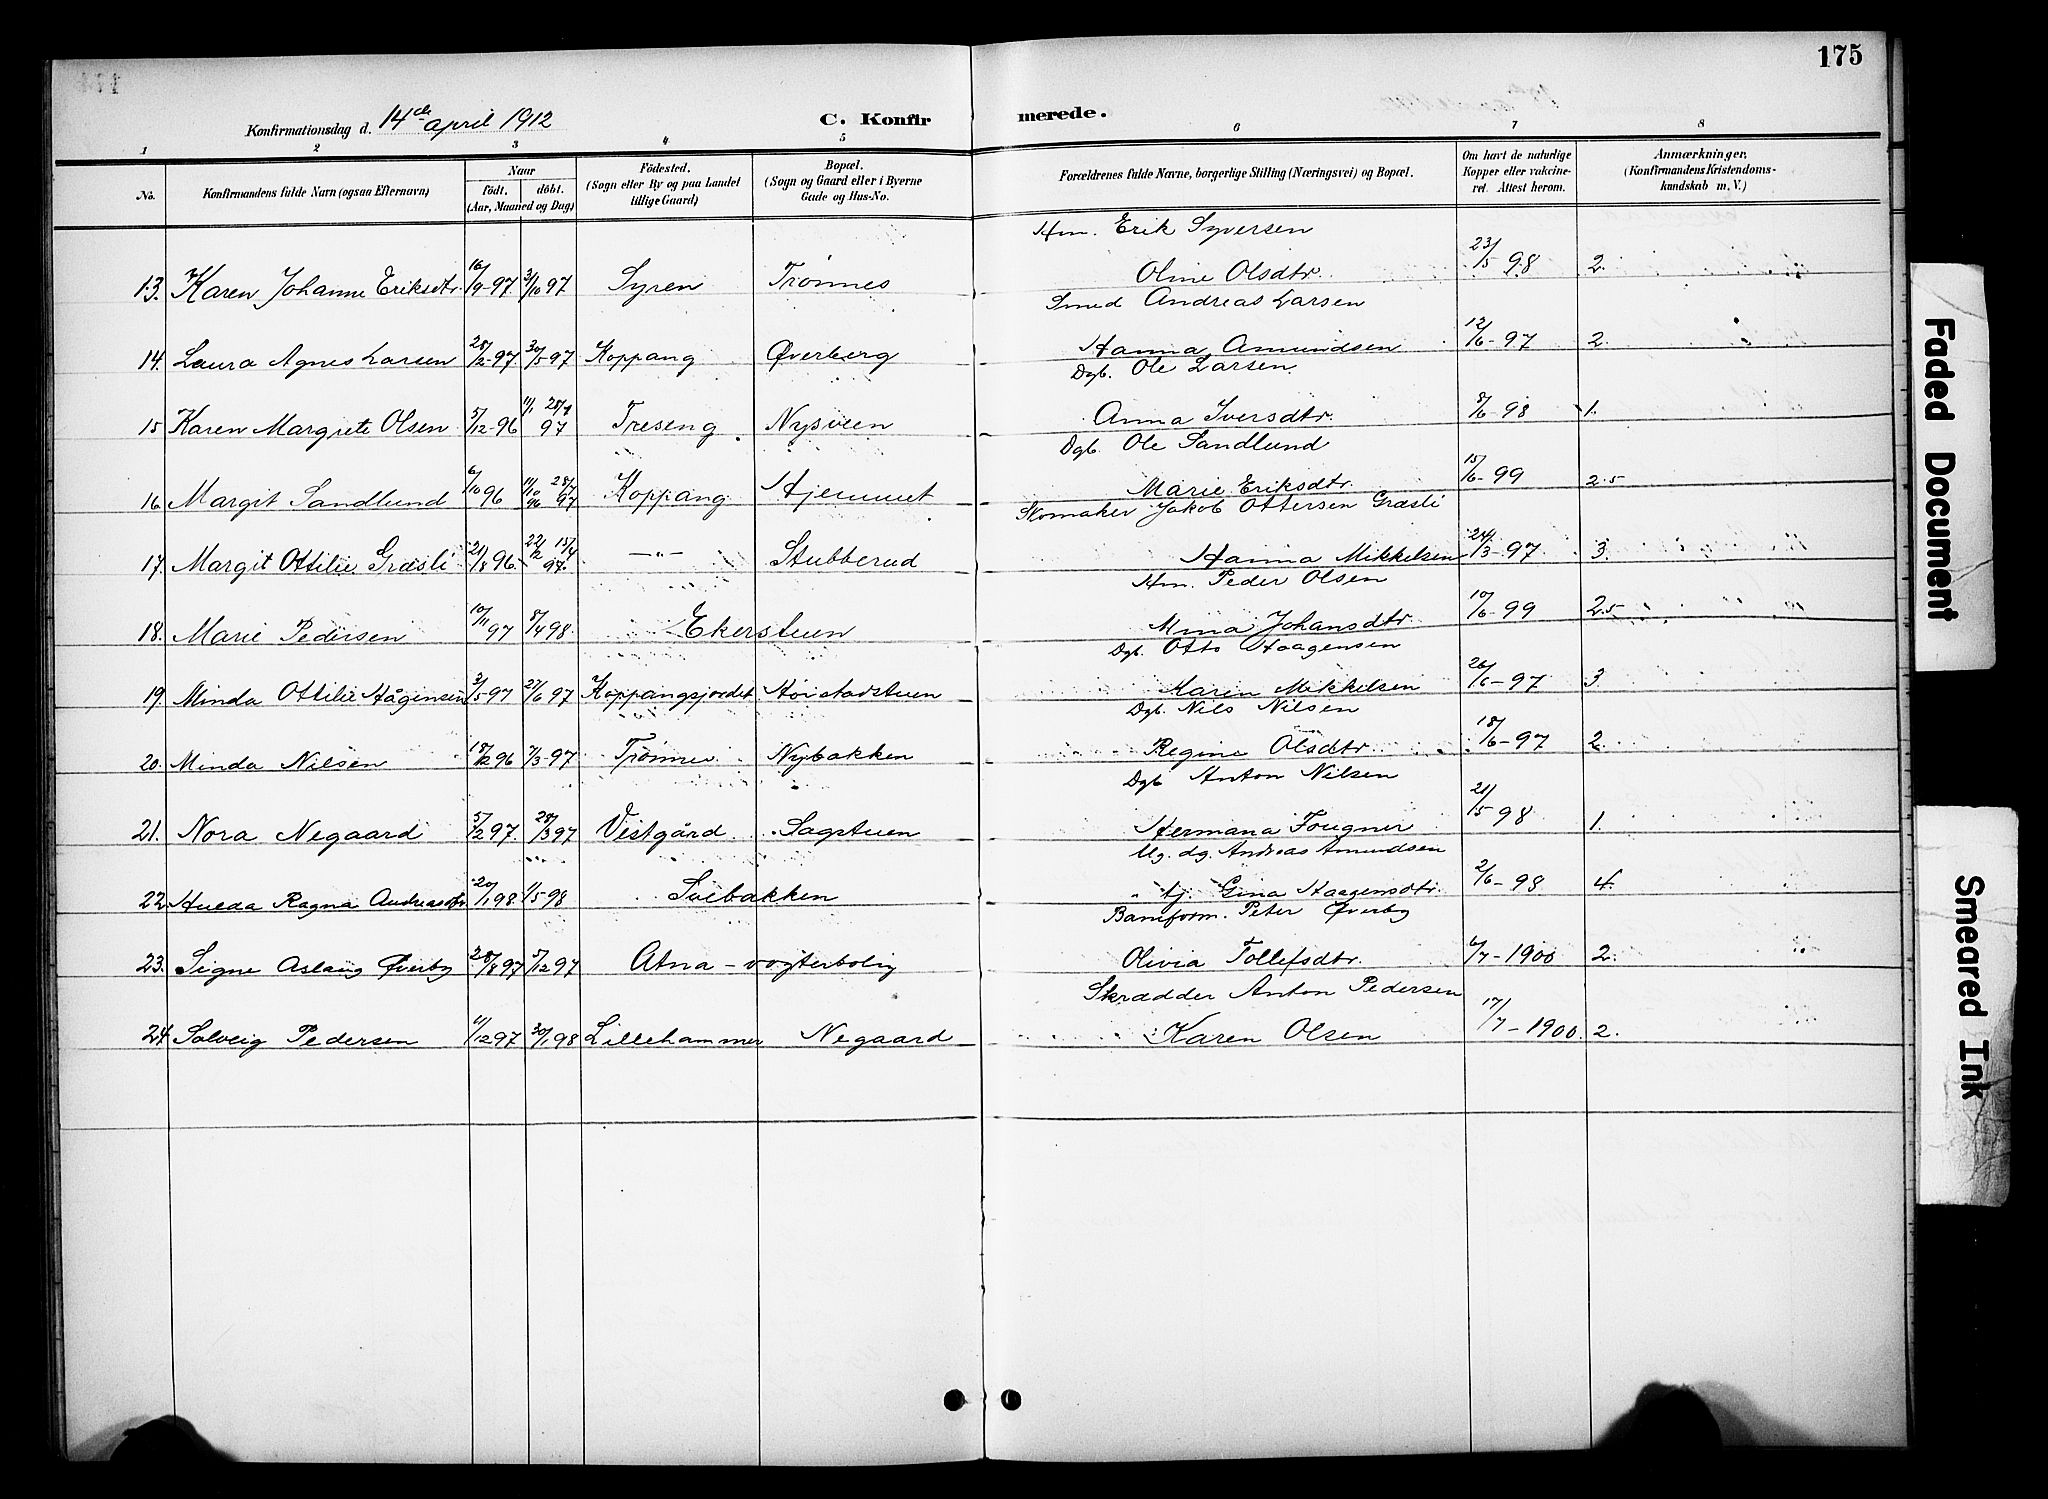 175
Konfirmationsdag d. 14de april 1912 C. Konfir merede.
1 2 3 4 5 6 7 8
No. Konfirmandens fulde Navn (ogsaa Efternavn) Naar født. døbt. (Aar, Maaned og Dag) Fødested. (Sogn eller By og paa Landet tillige Gaard) Bopæl. (Sogn og Gaard eller i Byerne Gade og Hus-No. Forældrenes fulde Navne, borgerlige Stilling (Næringsvei) og Bopæl. Om havt de naturlige Kopper eller vakcineret. Attest herom. Anmærkninger. (Konfirmandens Kristendomskundskab m. V.)
Hm. Erik Syversen
13. Karen Johanne Eriksdtr. 16/9-97 3/10 97 Syren Trønnes Oline Olsdtr. 23/5 98 2.
Smed Andreas Larsen
14. Laura Agnes Larsen 28/2-97 30/5-97 Koppang Øverberg Hanna Amundsen 12/6-97 2.
Dgb. Ole Larsen
15 Karen Margrete Olsen 5/12-96 11/1 97 Treseng Nysveen Anna Iversdtr. 8/6-98 1.
Dgb. Ole Sandlund
16. Margit Sandlund 6/10 96 11/10 96 97 Koppang Hjemmet Marie Eriksdtr. 15/6-99 2.5
Skomaker Jakob Ottersen Græsli
17. Margit Ottilie Græsli 21/8 96 22/12 15/4 97. —"— Stubberud Hanna Mikkelsen 24/3-97 3.
Hm. Peder Olsen
18. Marie Pedersen 10/11 97 8/4 98. Ekerstuen Mina Johansdtr. 10/6-99 2.5
Dgb. Otto Haagensen
19. Minda Ottilie Hågensen 3/5 97 27/6 97 Koppangsjordet Horstadstuen Karin Mikkelsen 26/6-97 3
Dgb. Nils Nilsen
20. Minda Nilsen 18/12 96 7/3-97 Trønnes Nybakken Regine Olsdtr. 18/6-97 2
Dgb Anton Nilsen
21. Nora Negaard 5/2 97. 28/3 97 Vestgård Sagstuen Hermana Fougner 21/5 98 1.
Ug. dg. Andreas Amundsen
22 Hulda Ragna Andreasdtr 20/1 98 1/5 98 Solbakken " tj. Gina Haagensdtr. 2/6-98 4.
Baneform. Peter Øverby
23. Signe Aslaug Øverby 28/8 97 5/12 97 Atna-vogterbolig Olivia Tollefsdtr. 6/7-1900 2.
Skrædder Anton Pedersen
24 Solveig Pedersen 11/12 97 30/1 98 Lillehammer Negaard Karen Olsen 17/7-1900. 2.
Faded Document
Smeared Ink